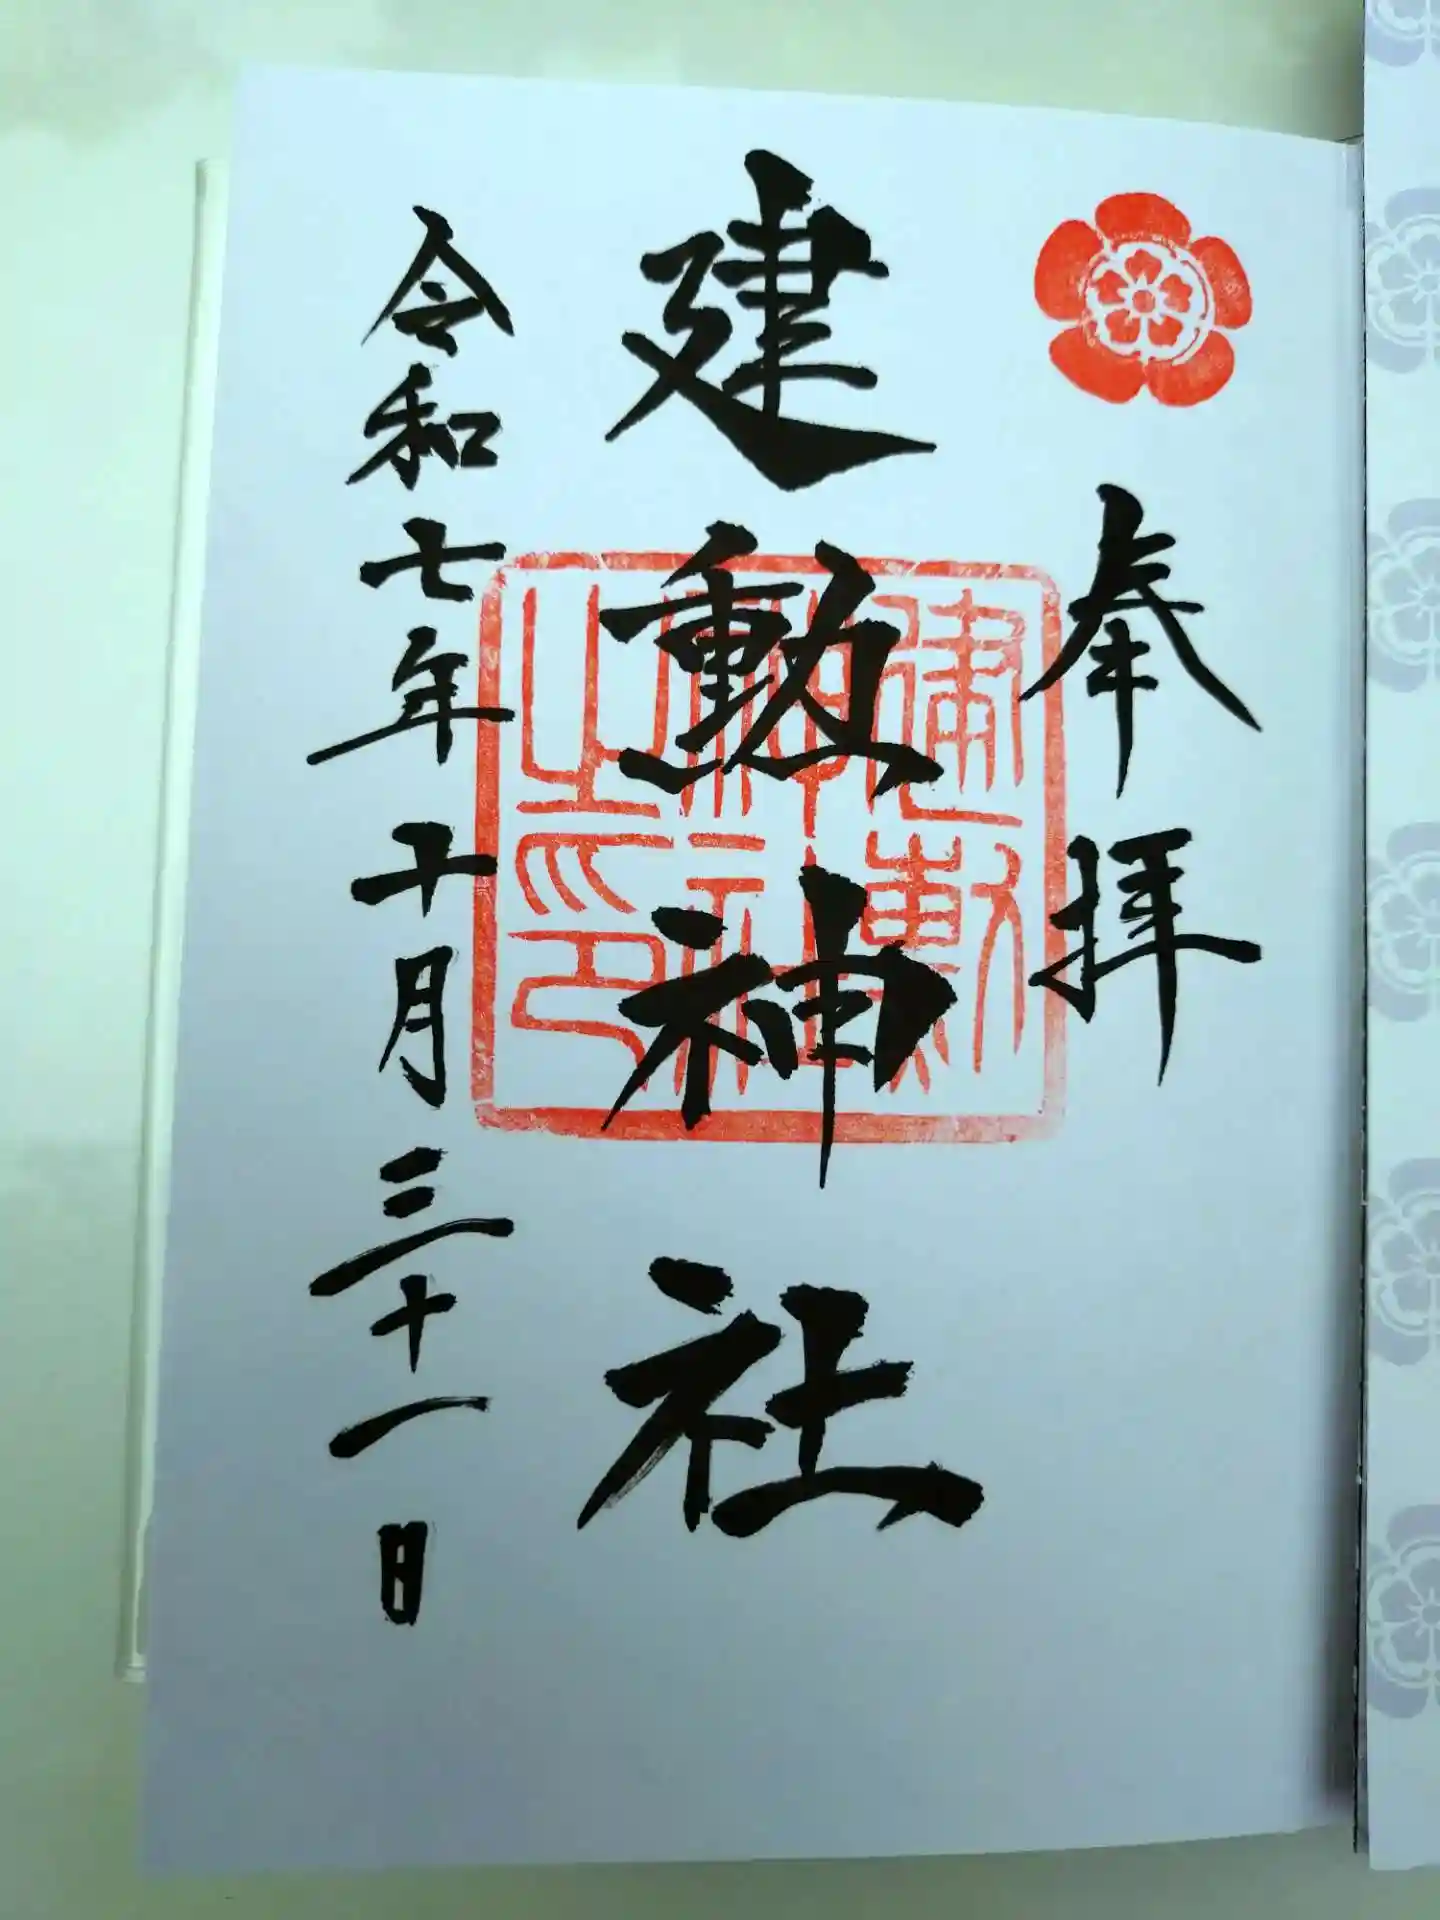 奉拝
建勲神社
建勲神社之印
令和七年十月三十一日